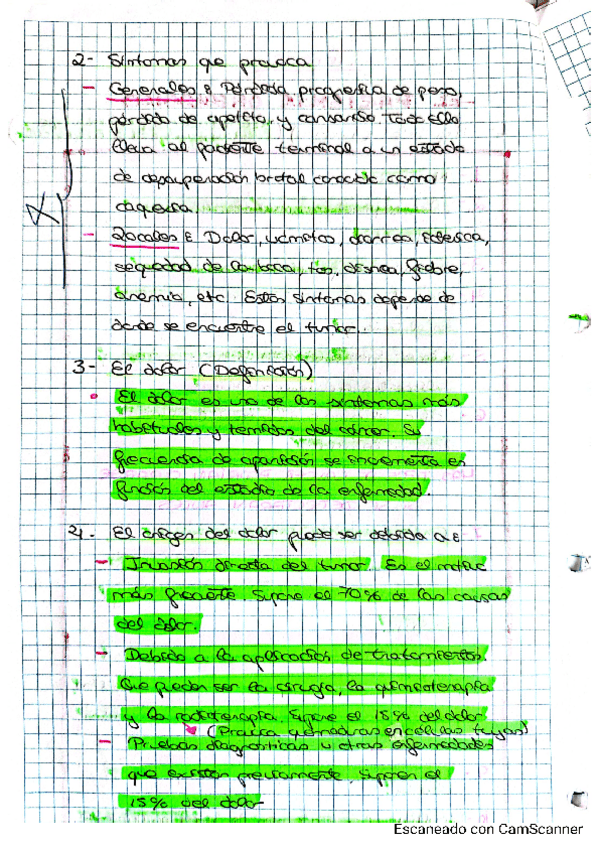 2- Síntomas que provoca
- Generales: Pérdida progresiva de peso,
pérdida de apetito, y cansancio. Todo ello
lleva al paciente terminal a un estado
de desnutrición brutal conocido como
caquexia.
- Locales: Dolor, vómitos, diarrea,
sequedad de la boca, tos, disnea, fiebre,
anemia, etc. Estos síntomas depende de
donde se encuentre el tumor.
3- El dolor (Definición)
El dolor es uno de los síntomas más
habituales y temidos del cáncer. Su
frecuencia de aparición se incrementa en
función del estadio de la enfermedad.
4- El origen del dolor puede ser debida a:
- Invasión directa del tumor. Es el motivo
más frecuente. Supone el 70% de las causas
del dolor.
- Debido a la aplicación de tratamientos.
Que pueden ser la cirugía, la quimioterapia
y la radioterapia. Supone el 15% del dolor
(Provoca quemaduras en células tuyas)
- Pruebas diagnósticas u otras enfermedades
que existan previamente. Suponen el
15% del dolor
Escaneado con CamScanner